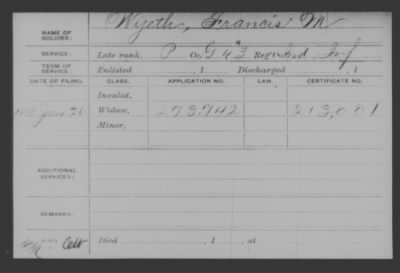 Wyeth, Francis M
NAME OF SOLDIER:
SERVICE: Late rank, P Co. G 43 Reg't Ind. Inf
TERM OF SERVICE: Enlisted , 1 Discharged , 1
DATE OF FILING. CLASS. APPLICATION NO. LAW. CERTIFICATE NO.
Invalid,
June 20 Widow, 273,942 313,001
Minor,
ADDITIONAL SERVICES:
REMARKS:
Died , 1 , at